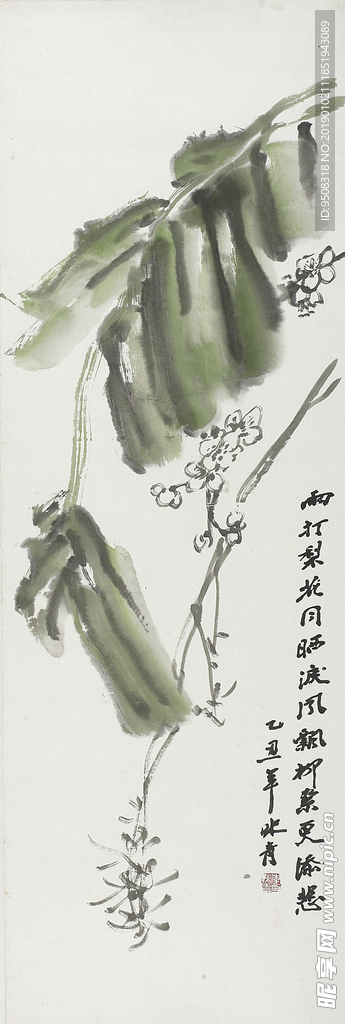 雨打梨花同晒淚風飄柳絮更添愁
乙丑年冰青
ID:9508318 NO:20190102111851943089
昵享网 www.nipic.cn